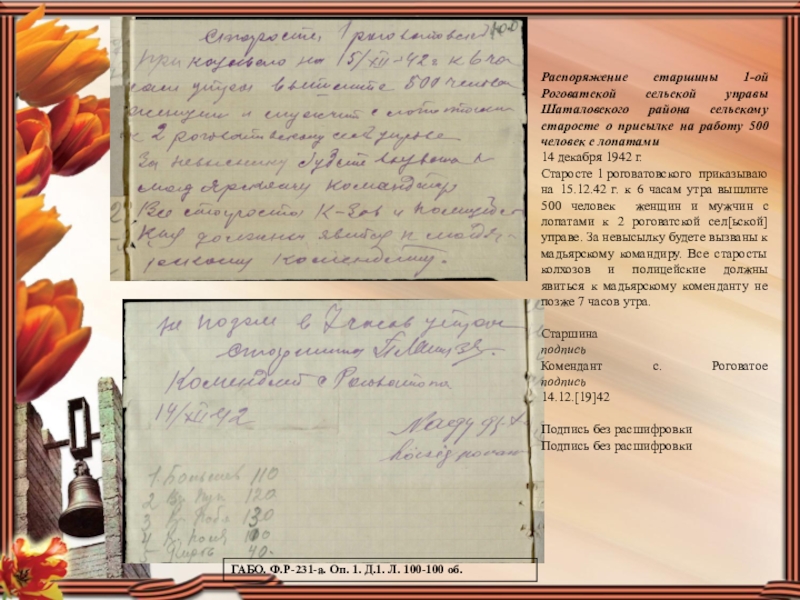 Старосте 1 роговатовской
приказываю на 15/XII-42 г к 6 ча
сам утра вышлите 500 челове
женщин и мужчин с лопатами
к 2 роговатовскому сел управе
За невысылку будете вызваны к
мадьярскому командир
Все старосты К-зов и полицейс
кие должны явится к мадья-
рскому коменданту.
не позже в 7 часов утра
старшина
Комендант с Роговатого
14/XII-42
Nagy
110
120
130
100
40-
Распоряжение старшины 1-ой
Роговатской сельской управы
Шаталовского района сельскому
старосте о присылке на работу 500
человек с лопатами
14 декабря 1942 г.
Старосте 1 роговатовского приказываю
на 15.12.42 г. к 6 часам утра вышлите
500 человек женщин и мужчин с
лопатами к 2 роговатской сел[ьской]
управе. За невысылку будете вызваны к
мадьярскому командиру. Все старосты
колхозов и полицейские должны
явиться к мадьярскому коменданту не
позже 7 часов утра.
Старшина
подпись
Комендант с. Роговатое
подпись
14.12.[19]42
Подпись без расшифровки
Подпись без расшифровки
ГАБО. Ф.Р-231-а. Оп. 1. Д.1. Л. 100-100 об.